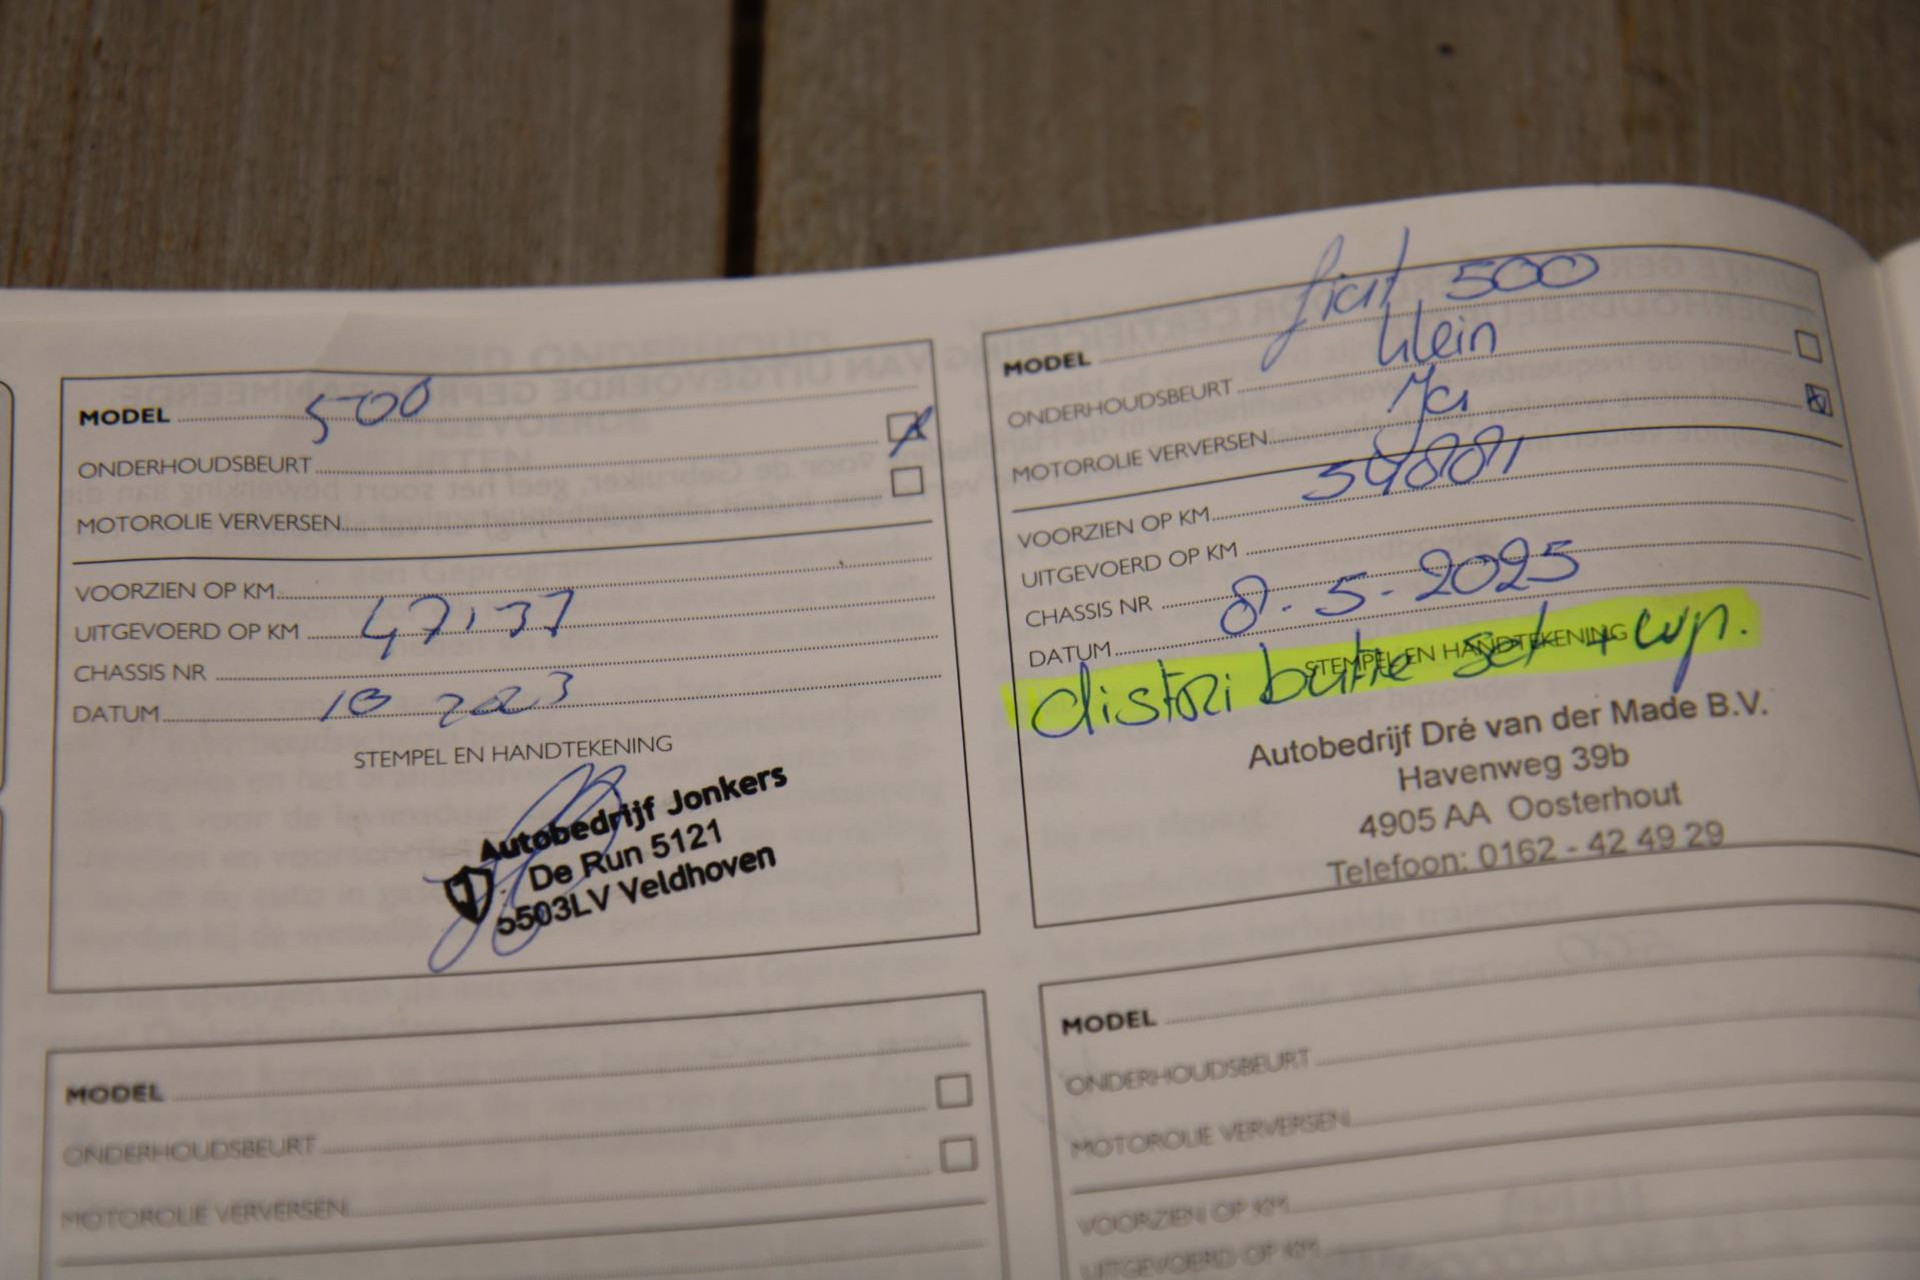 MODEL 500
ONDERHOUDSBEURT
MOTOROLIE VERVERSEN
VOORZIEN OP KM
UITGEVOERD OP KM 47137
CHASSIS NR
DATUM 10 2023
STEMPEL EN HANDTEKENING
Autobedrijf Jonkers
De Run 5121
5503LV Veldhoven
MODEL fiat 500
ONDERHOUDSBEURT klein
MOTOROLIE VERVERSEN Ja
VOORZIEN OP KM
UITGEVOERD OP KM
CHASSIS NR
DATUM 8-5-2025
STEMPEL EN HANDTEKENING
distributie set + wp.
Autobedrijf Dré van der Made B.V.
Havenweg 39b
4905 AA Oosterhout
Telefoon: 0162 - 42 49 29
MODEL
ONDERHOUDSBEURT
MOTOROLIE VERVERSEN
MODEL
ONDERHOUDSBEURT
MOTOROLIE VERVERSEN
VOORZIEN OP KM
UITGEVOERD OP KM